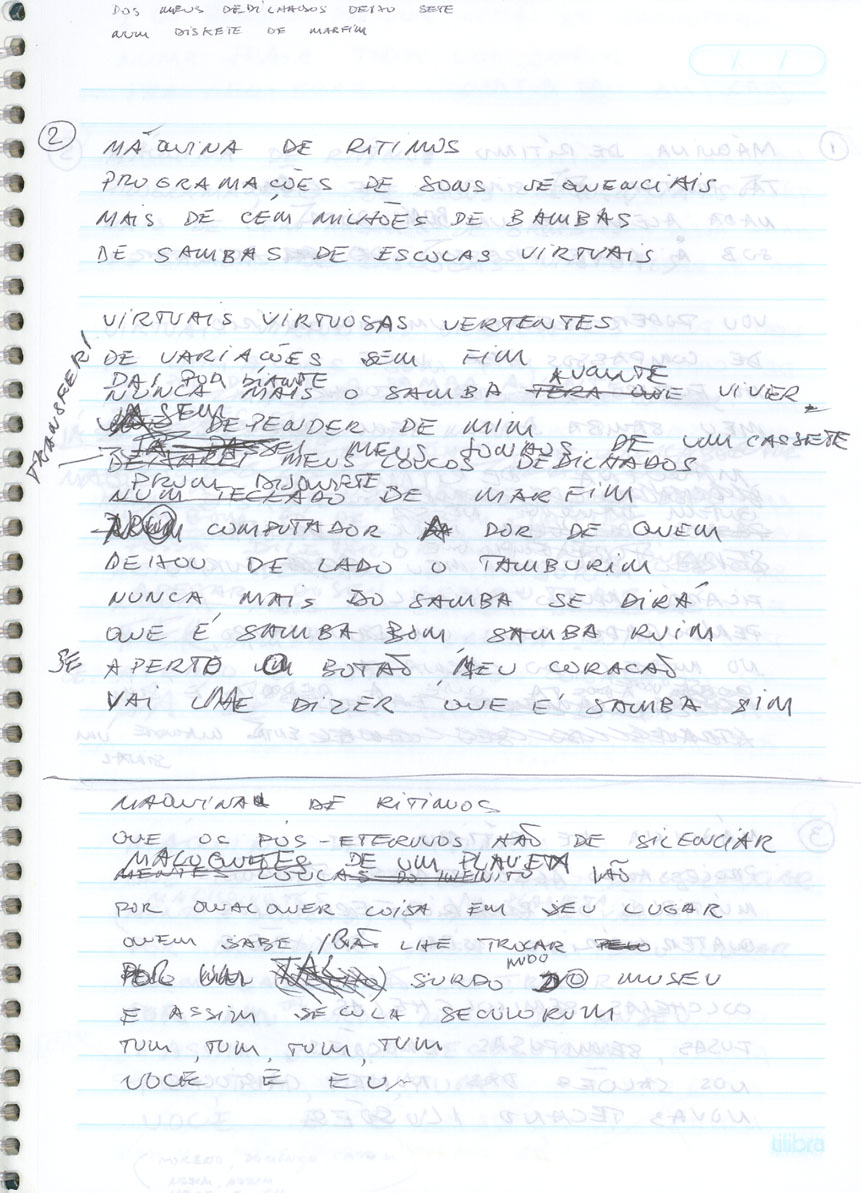 DOS MEUS DEDILHADOS DEIXO SETE
NUM DISKETE DE MARFIM
2
MÁQUINA DE RITIMOS
PROGRAMAÇÕES DE SONS SEQUENCIAIS
MAIS DE CEM MILHÕES DE BAMBAS
DE SAMBAS DE ESCOLAS VIRTUAIS
VIRTUAIS VIRTUOSAS VERTENTES
DE VARIAÇÕES SEM FIM
DAI POR DIANTE AVANTE
NUNCA MAIS O SAMBA TERÁ QUE VIVER
JÁ SEM
DEPENDER DE MIM
TRANSFERI
MEUS SONHOS DE UM CASSETE
DEIXAREI MEUS LOUCOS DEDILHADOS
PRUM DISQUETE
NUM TECLADO DE MARFIM
COMPUTADOR A DOR DE QUEM
DEIXOU DE LADO O TAMBURIM
NUNCA MAIS DO SAMBA SE DIRÁ
QUE É SAMBA BOM SAMBA RUIM
SE APERTO O BOTÃO, MEU CORAÇÃO
VAI LHE DIZER QUE É SAMBA SIM
MAQUINA DE RITIMOS
QUE OS PÓS-ETERNOS HÃO DE SILENCIAR
MALUQUETES DE UM PLANETA
MENTES LOUCAS DO INFINITO VÃO
POR QUALQUER COISA EM SEU LUGAR
QUEM SABE IRÃO LHE TROCAR PELO
POR UM TAL SURDO MUDO NO MUSEU
E ASSIM SECULA SECULORUM
TUM, TUM, TUM, TUM
VOCÊ E EU
tilibra